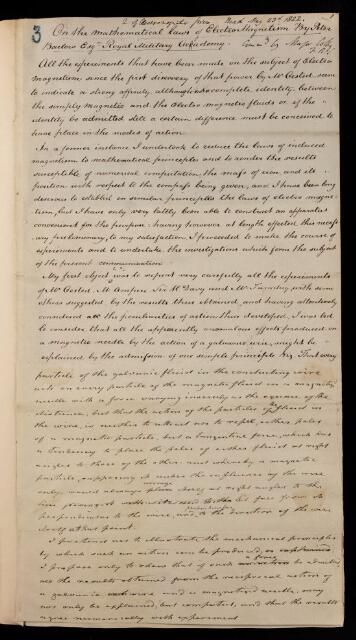 3
Read May 23d 1822.
On the mathematical laws of Electro Magnetism By Peter
Barlow Esq Royal Military Academy. by
All the experiments that have been made on the subject of Electro
magnetism since the first discovery of that power by Mr Oersted, seem
to indicate a strong affinity, although not a complete identity between
the simply magnetic and the Electro magnetic fluids or if the
identity be admitted still a certain difference must be conceived to
have place in the modes of action.
In a former instance I undertook to reduce the laws of induced
magnetism to mathematical principles and to render the results
susceptible of numerical computation, the mass of iron and its
position with respect to the compass being given, and I have been long
desirous to establish on similar principles the laws of electro magne-
tism, but I have only very lately been able to construct an apparatus
convenient for the purpose; having however at length effected this neces-
sary preliminary, to my satisfaction I proceeded to make the course of
experiments and to undertake the investigations which form the subject
of the present communication
My first object was to repeat very carefully all the experiments
of Mr Oersted, M. Ampere Sir H. Davy and Mr Faraday, with some
others suggested by the results thus obtained, and having attentively
considered all the peculiarities of action thus developed, I was led
to consider that all the apparently anomalous effects produced on
a magnetic needle by the action of a galvanic wire, might be
explained by the admission of one simple principle Viz. That every
particle of the galvanic fluid in the conducting wire
acts on every particle of the magnetic fluid in a magnetic
needle with a force varying inversely as the square of the
distance, but that the action of the particles of the fluid in
the wire, is neither to attract nor to repel, either poles
of a magnetic particle, but a tangential force, which has
a tendency to place the poles of either fluid at right
angles to those of the other: and whereby a magnetic
particle, supposing it under the influence of the wire
only, would always place itself at right angles to the
line let fall from it
perpendicular to the wire, and to the direction of the wire
itself at that point.
I pretend not to illustrate, the mechanical principles
by which such an action can be produced,
I propose only to shew that if such a force be admitted
all the results obtained from the reciprocal action of
a galvanic wire and a magnetized needle, may
not only be explained, but computed, and that the results
agree numerically with experiment